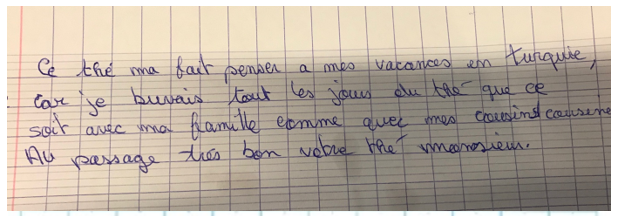 Ce thé ma fait penser a mes vacances en turquie,
car je buvais tout les jours du thé que ce
soit avec ma famille comme avec mes cousins cousine
Au passage très bon votre thé monsieur.